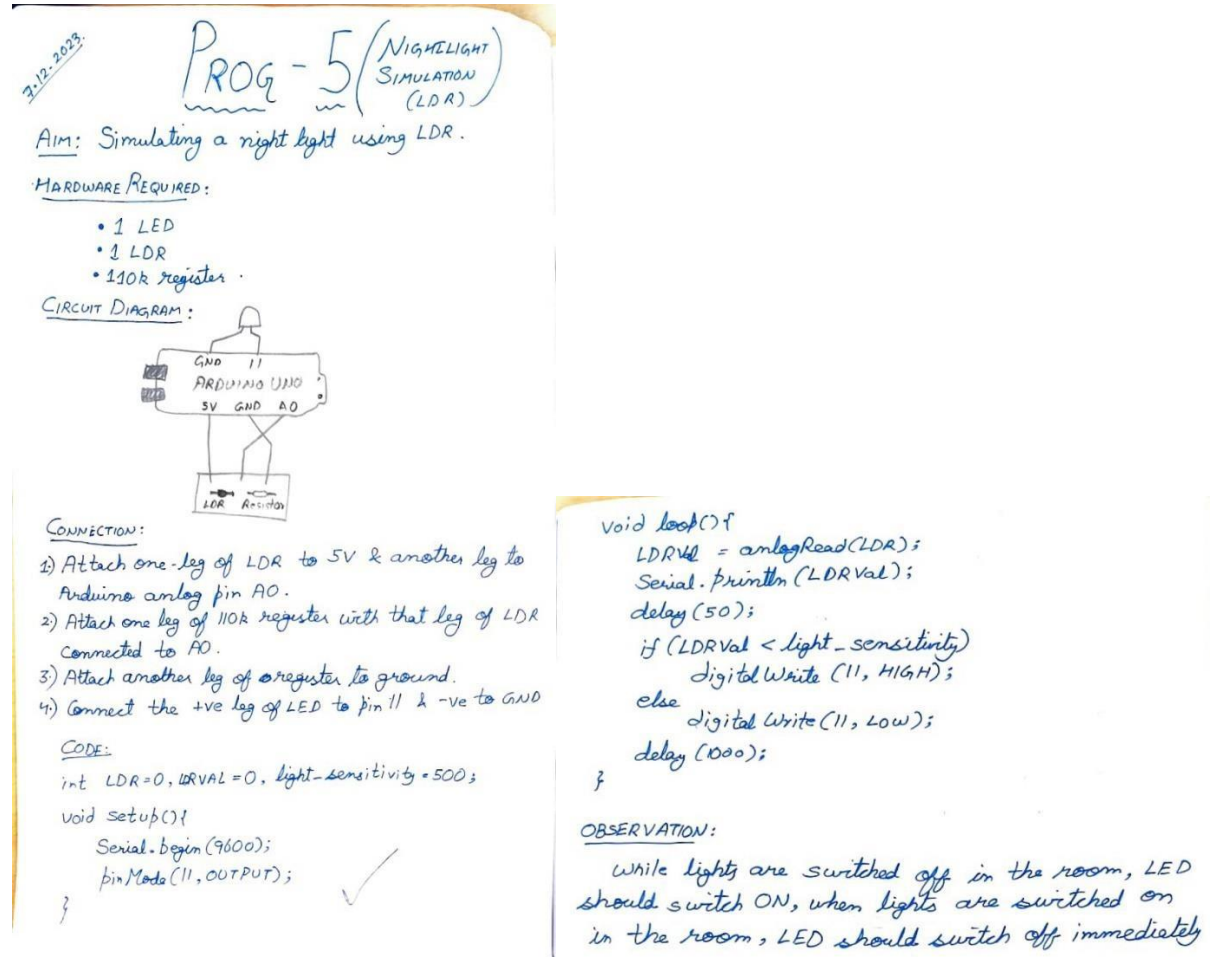 7.12.2023.
PROG - 5 (NIGHTLIGHT
SIMULATION
(LDR))
AIM: Simulating a night light using LDR.
HARDWARE REQUIRED:
• 1 LED
• 1 LDR
• 110k register.
CIRCUIT DIAGRAM:
GND 11
ARDUINO UNO
5V GND A0
LDR Resistor
CONNECTION:
1) Attach one-leg of LDR to 5V & another leg to
Arduino anlog pin A0.
2) Attach one leg of 110k register with that leg of LDR
connected to A0.
3) Attach another leg of register to ground.
4) Connect the +ve leg of LED to pin 11 & -ve to GND
CODE:
int LDR=0, LDRVAL=0, light_sensitivity=500;
void setup(){
Serial.begin(9600);
pinMode(11, OUTPUT);
}
void loop(){
LDRVal = anlogRead(LDR);
Serial.println(LDRVal);
delay(50);
if (LDRVal < light_sensitivity)
digitalWrite(11, HIGH);
else
digitalWrite(11, LOW);
delay(1000);
}
OBSERVATION:
While lights are switched off in the room, LED
should switch ON, when lights are switched on
in the room, LED should switch off immediately